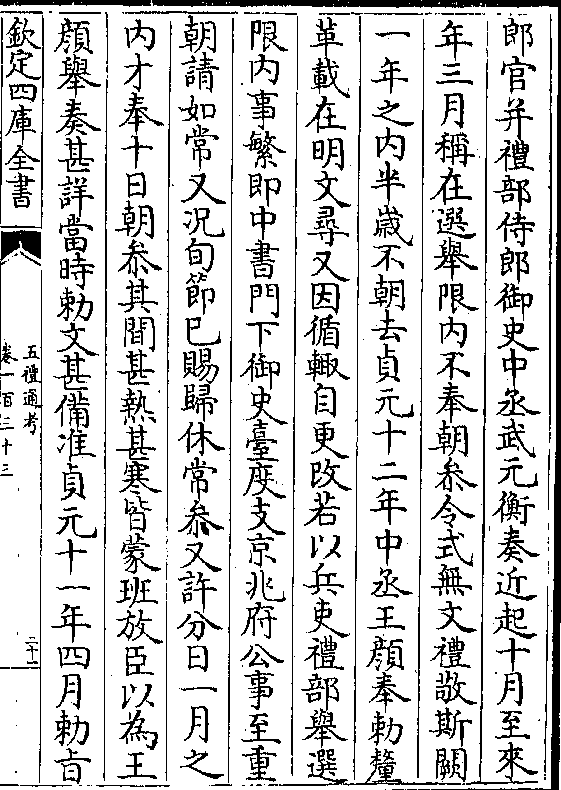 郎官并禮部侍郎御史中丞武元衡奏近起十月至來
年三月稱在選舉限内不奉朝叅令式無文禮敬斯闕
一年之内半歲不朝去貞元十二年中丞王顔奉勅釐
革載在明文尋又因循輙自更改若以兵吏禮部舉選
限内事繁即中書門下御史臺度支京兆府公事至重
朝請如常又况旬節已賜歸休常叅又許分日一月之
内才奉十日朝叅其間甚熱甚寒皆蒙班放臣以為王
顔舉奏甚詳當時勅文甚備准貞元十一年四月勅旨
欽定四庫全書
五禮通考
卷一百三十三
二十一